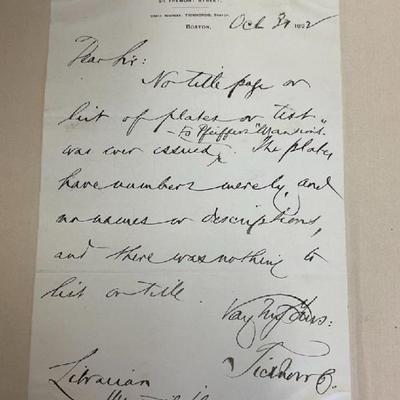 TREMONT STREET,
BOSTON,
Oct 1892
Dear Sir:
No title page or
list of plates or text
to Pfeiffer's "Mansions"
was ever issued. The plates
have numbers merely, and
no names or descriptions,
and there was nothing to
list or title.
Very truly Yours:
Ticknor & Co.
Librarian